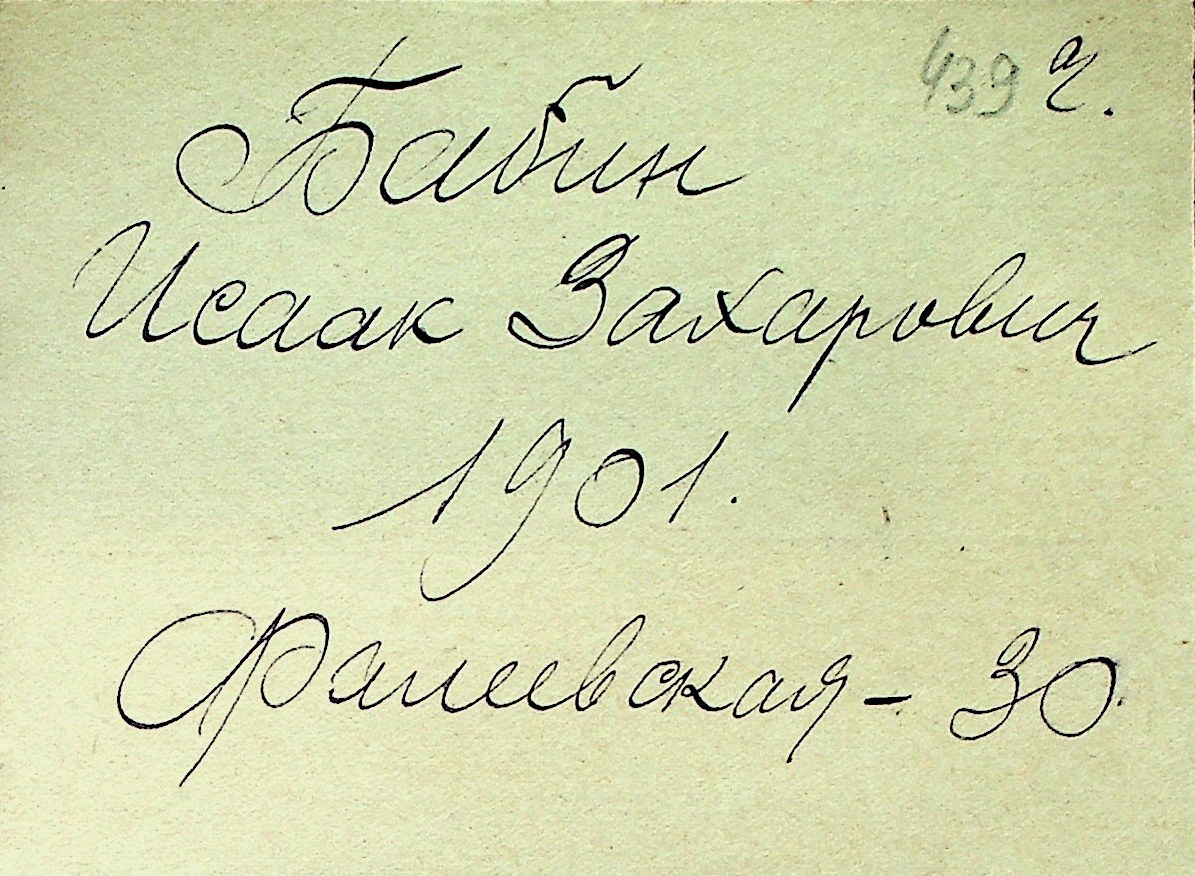 439 г.
Бабин
Исаак Захарович
1901.
Фалеевская – 30.